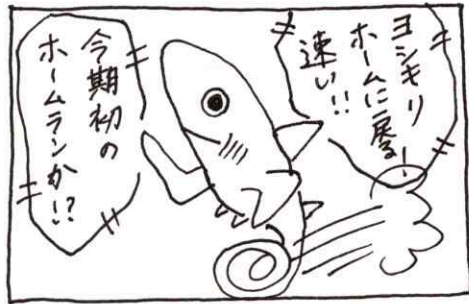 ヨシキリ
ホームに戻る
速い!!
今期初の
ホームランか!?